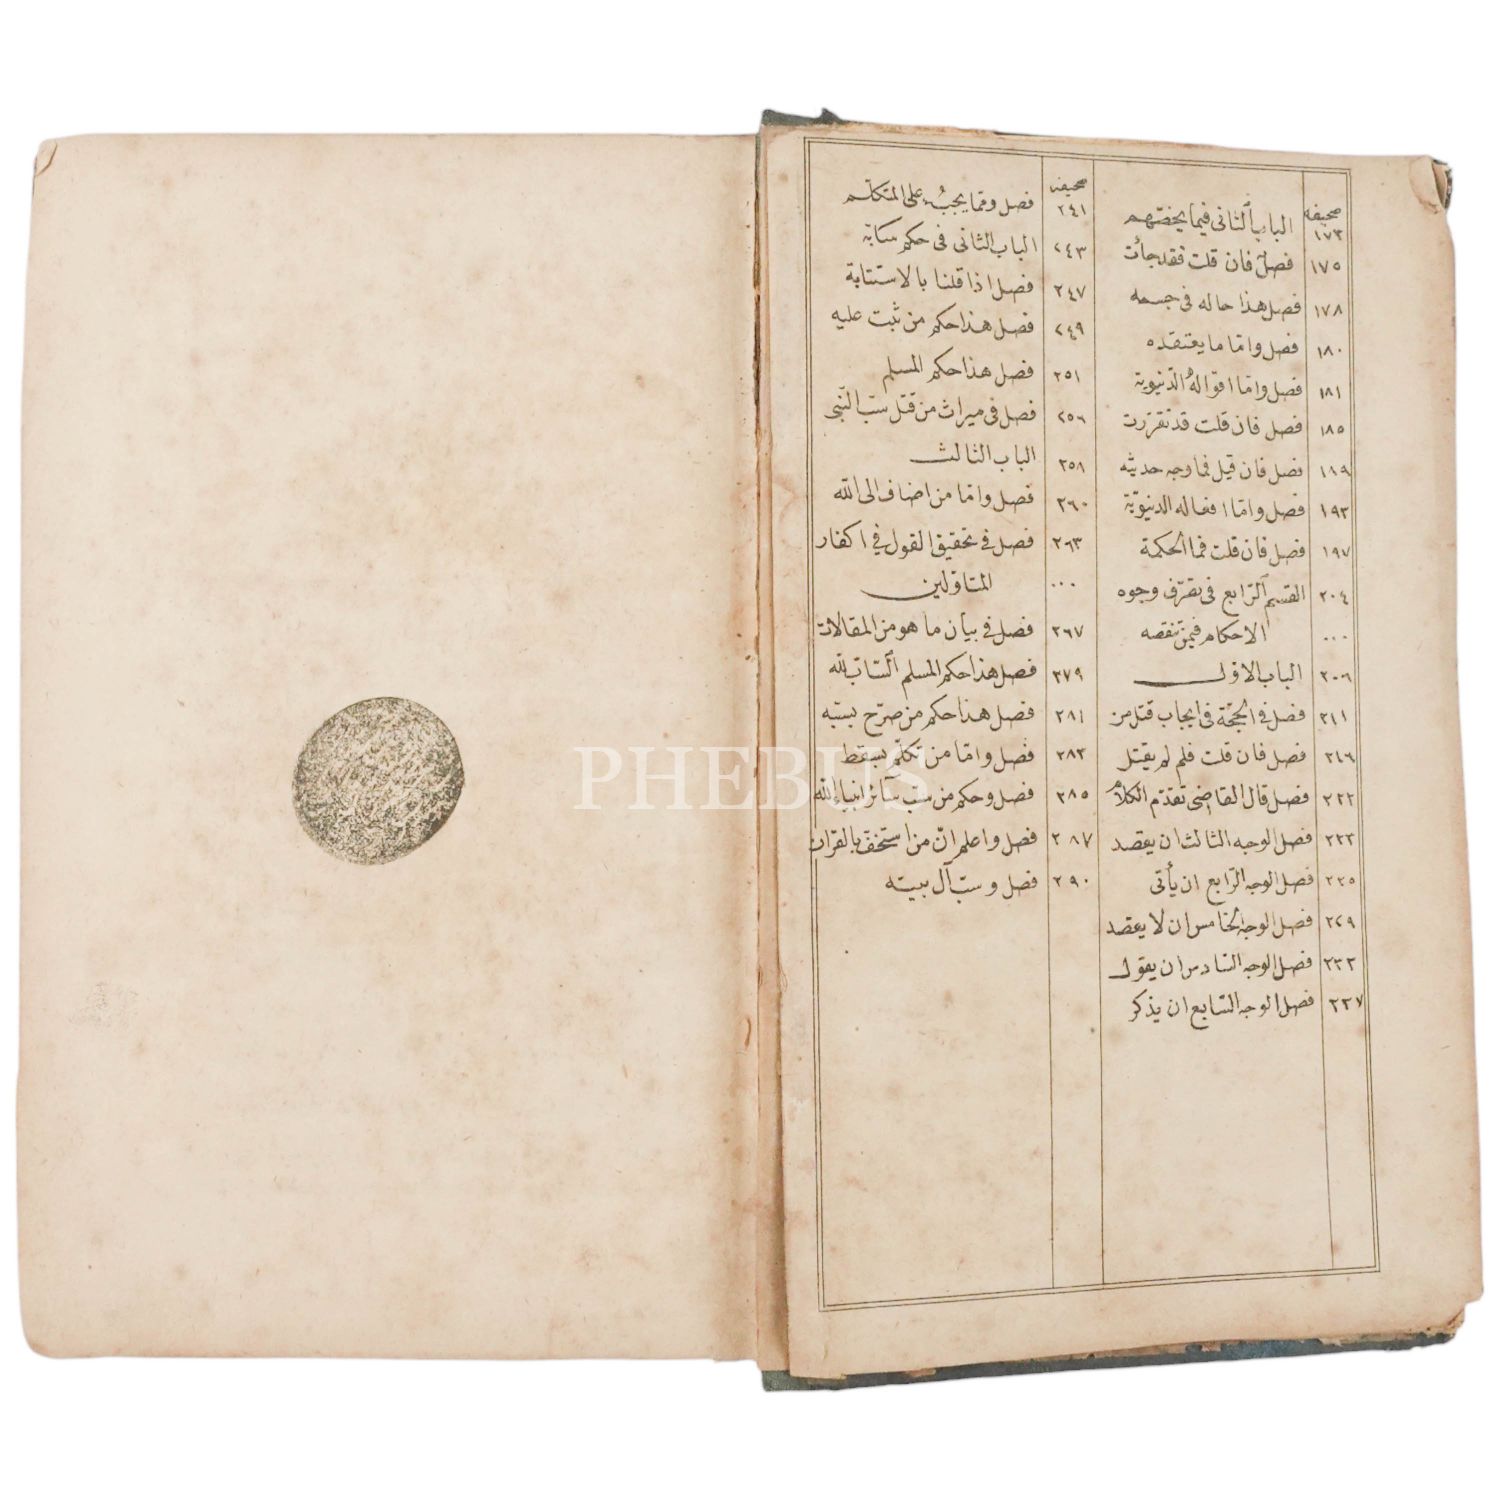 صحيفه
١٧٣ الباب الثانى فيما يخصّهم
١٧٥ فصل فان قلت فقد جأت
١٧٨ فصل هذا حاله فى جسمه
١٨٠ فصل وامّا ما يعتقده
١٨١ فصل وامّا اقواله الدّنيوية
١٨٥ فصل فان قلت قد تقرّرت
١٨٩ فصل فان قيل فما وجه حديثه
١٩٣ فصل وامّا افعاله الدنيويّة
١٩٧ فصل فان قلت فما الحكمة
٢٠٤ القسم الرّابع فى تصرّف وجوه
٠٠٠ الاحكام فيمن تنقصه
٢٠٦ الباب الاوّل
٢١١ فصل فى الحجّة فى ايجاب قتل من
٢١٦ فصل فان قلت فلم لم يقتل
٢٢٢ فصل قال القاضى تقدّم الكلام
٢٢٣ فصل الوجه الثالث ان يقصد
٢٢٥ فصل الوجه الرّابع ان يأتى
٢٢٩ فصل الوجه الخامس ان لا يقصد
٢٣٢ فصل الوجه السّادس ان يقول
٢٣٧ فصل الوجه السّابع ان يذكر
صحيفه
٢٤١ فصل وممّا يجب على المتكلّم
٢٤٣ الباب الثانى فى حكم سابّه
٢٤٧ فصل اذا قلنا بالاستتابة
٢٤٩ فصل هذا حكم من ثبت عليه
٢٥١ فصل هذا حكم المسلم
٢٥٦ فصل فى ميراث من قتل بسبّ النّبى
٢٥٨ الباب الثالث
٢٦٠ فصل وامّا من اضاف الى اللّه
٢٦٣ فصل فى تحقيق القول فى اكفار
٠٠٠ المتاوّلين
٢٦٧ فصل فى بيان ما هو من المقالات
٢٧٩ فصل هذا حكم المسلم السّاب للّه
٢٨١ فصل هذا حكم من صرّح بسبّه
٢٨٣ فصل وامّا من تكلّم بسقط
٢٨٥ فصل وحكم من سبّ سآئر انبياء اللّه
٢٨٧ فصل واعلم انّ من استخفّ بالقرآن
٢٩٠ فصل وسبّ آل بيته
PHEBUS